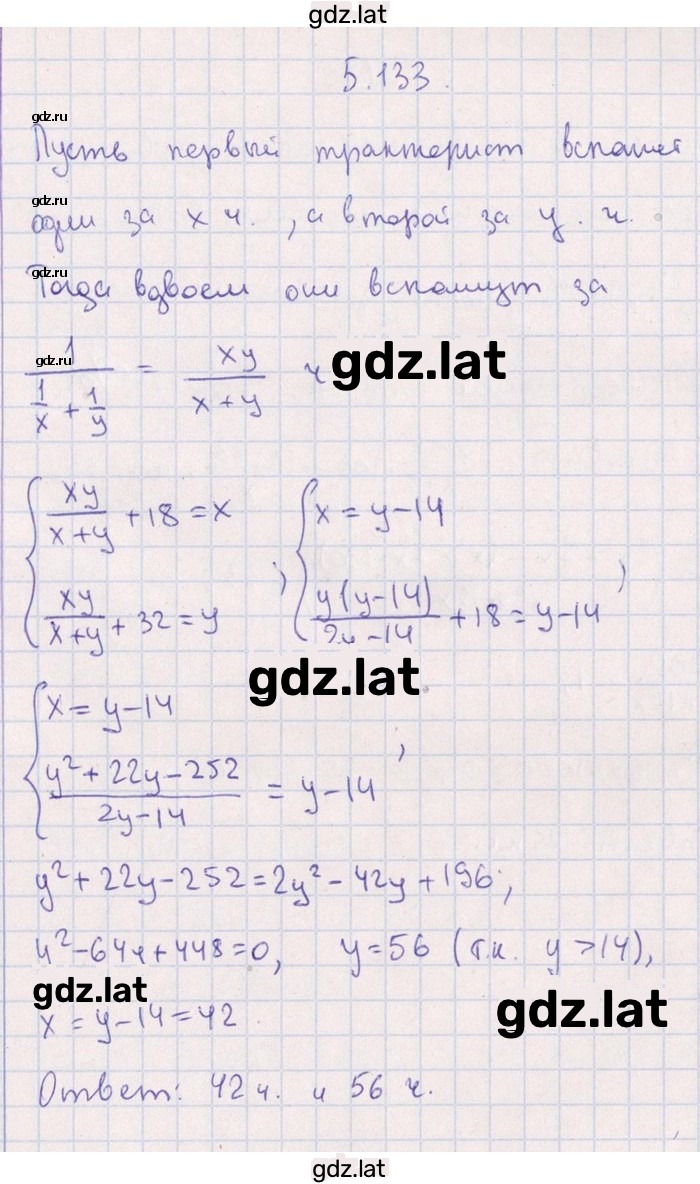 gdz.lat
5.133.
gdz.ru
Пусть первый тракторист вспашет
gdz.ru
один за x ч., а второй за y ч.
gdz.ru
Тогда вдвоем они вспашут за
gdz.ru
1 / (1/x + 1/y) = xy / (x+y) ч
gdz.lat
{ xy/(x+y) + 18 = x ; { x = y-14
{ xy/(x+y) + 32 = y ; { y(y-14)/(2y-14) + 18 = y-14 ;
gdz.lat
{ x = y-14
{ (y²+22y-252)/(2y-14) = y-14 ,
y²+22y-252=2y²-42y+196;
y²-64y+448=0, y=56 (т.к. y>14),
gdz.lat
x = y-14=42
gdz.lat
Ответ: 42 ч. и 56 ч.
gdz.lat